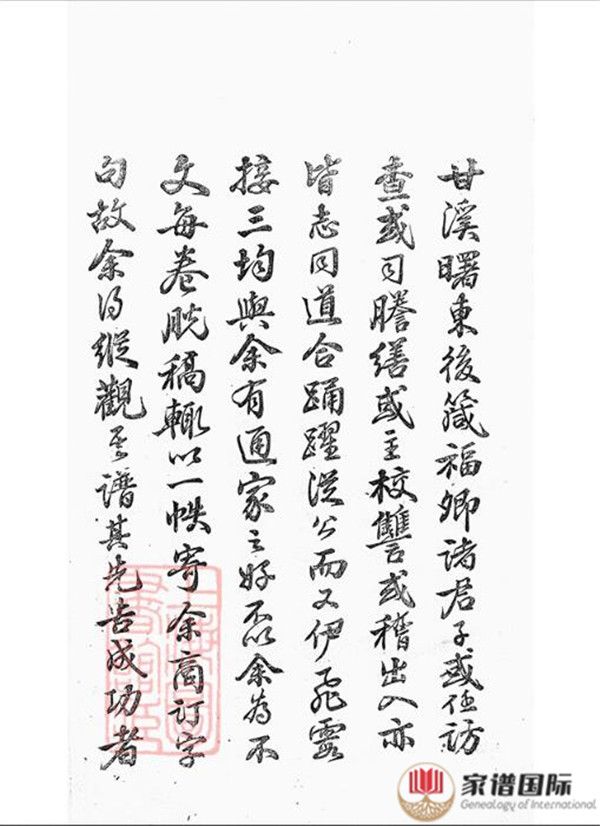 甘溪曙東後箴福卿諸君子或任訪
查或司謄繕或主校讐或稽出入亦
皆志同道合踊躍從公而又伊飛雲
接三均與余有通家之好不以余為不
文每卷脫稿輒以一帙寄余商訂字
句故余得縱觀其譜其先告成功者
家谱国际
Genealogy of International